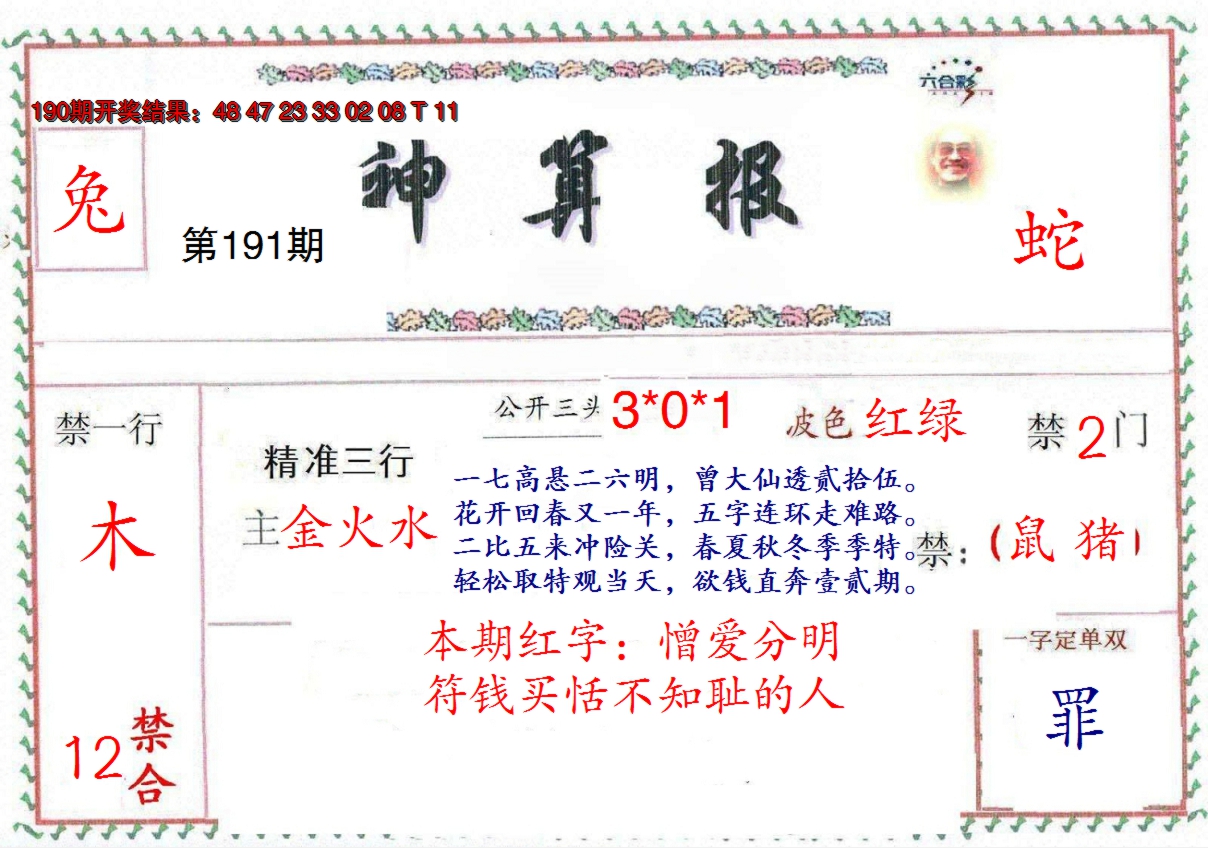 六合彩
190期开奖结果：48 47 23 33 02 08 T 11
神算报
兔
第191期
蛇
公开三头 3*0*1 波色 红绿 禁2门
禁一行
精准三行
木
主金火水
一七高悬二六明，曾大仙透贰拾伍。
花开回春又一年，五字连环走难路。
二比五来冲险关，春夏秋冬季季特。
轻松取特观当天，欲钱直奔壹贰期。
禁：（鼠 猪）
本期红字：憎爱分明
符钱买恬不知耻的人
一字定单双
罪
12禁合